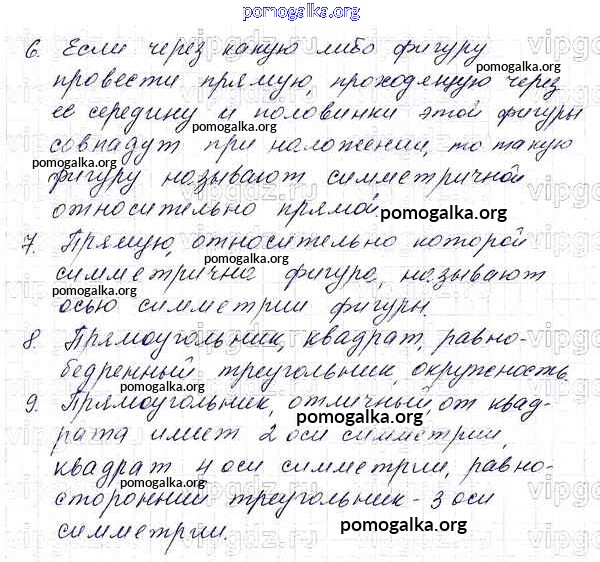 pomogalka.org
6. Если через какую либо фигуру
провести прямую, проходящую через
ее середину и половинки этой фигуры
pomogalka.org
совпадут при наложении, то такую
pomogalka.org
фигуру называют симметричной
относительно прямой.
pomogalka.org
7. Прямую, относительно которой
pomogalka.org
симметрична фигура, называют
pomogalka.org
осью симметрии фигуры.
8. Прямоугольник, квадрат, равно-
бедренный треугольник, окружность.
pomogalka.org
9. Прямоугольник, отличный от квад-
pomogalka.org
рата имеет 2 оси симметрии,
квадрат 4 оси симметрии, равно-
pomogalka.org
сторонний треугольник - 3 оси
симметрии.
pomogalka.org